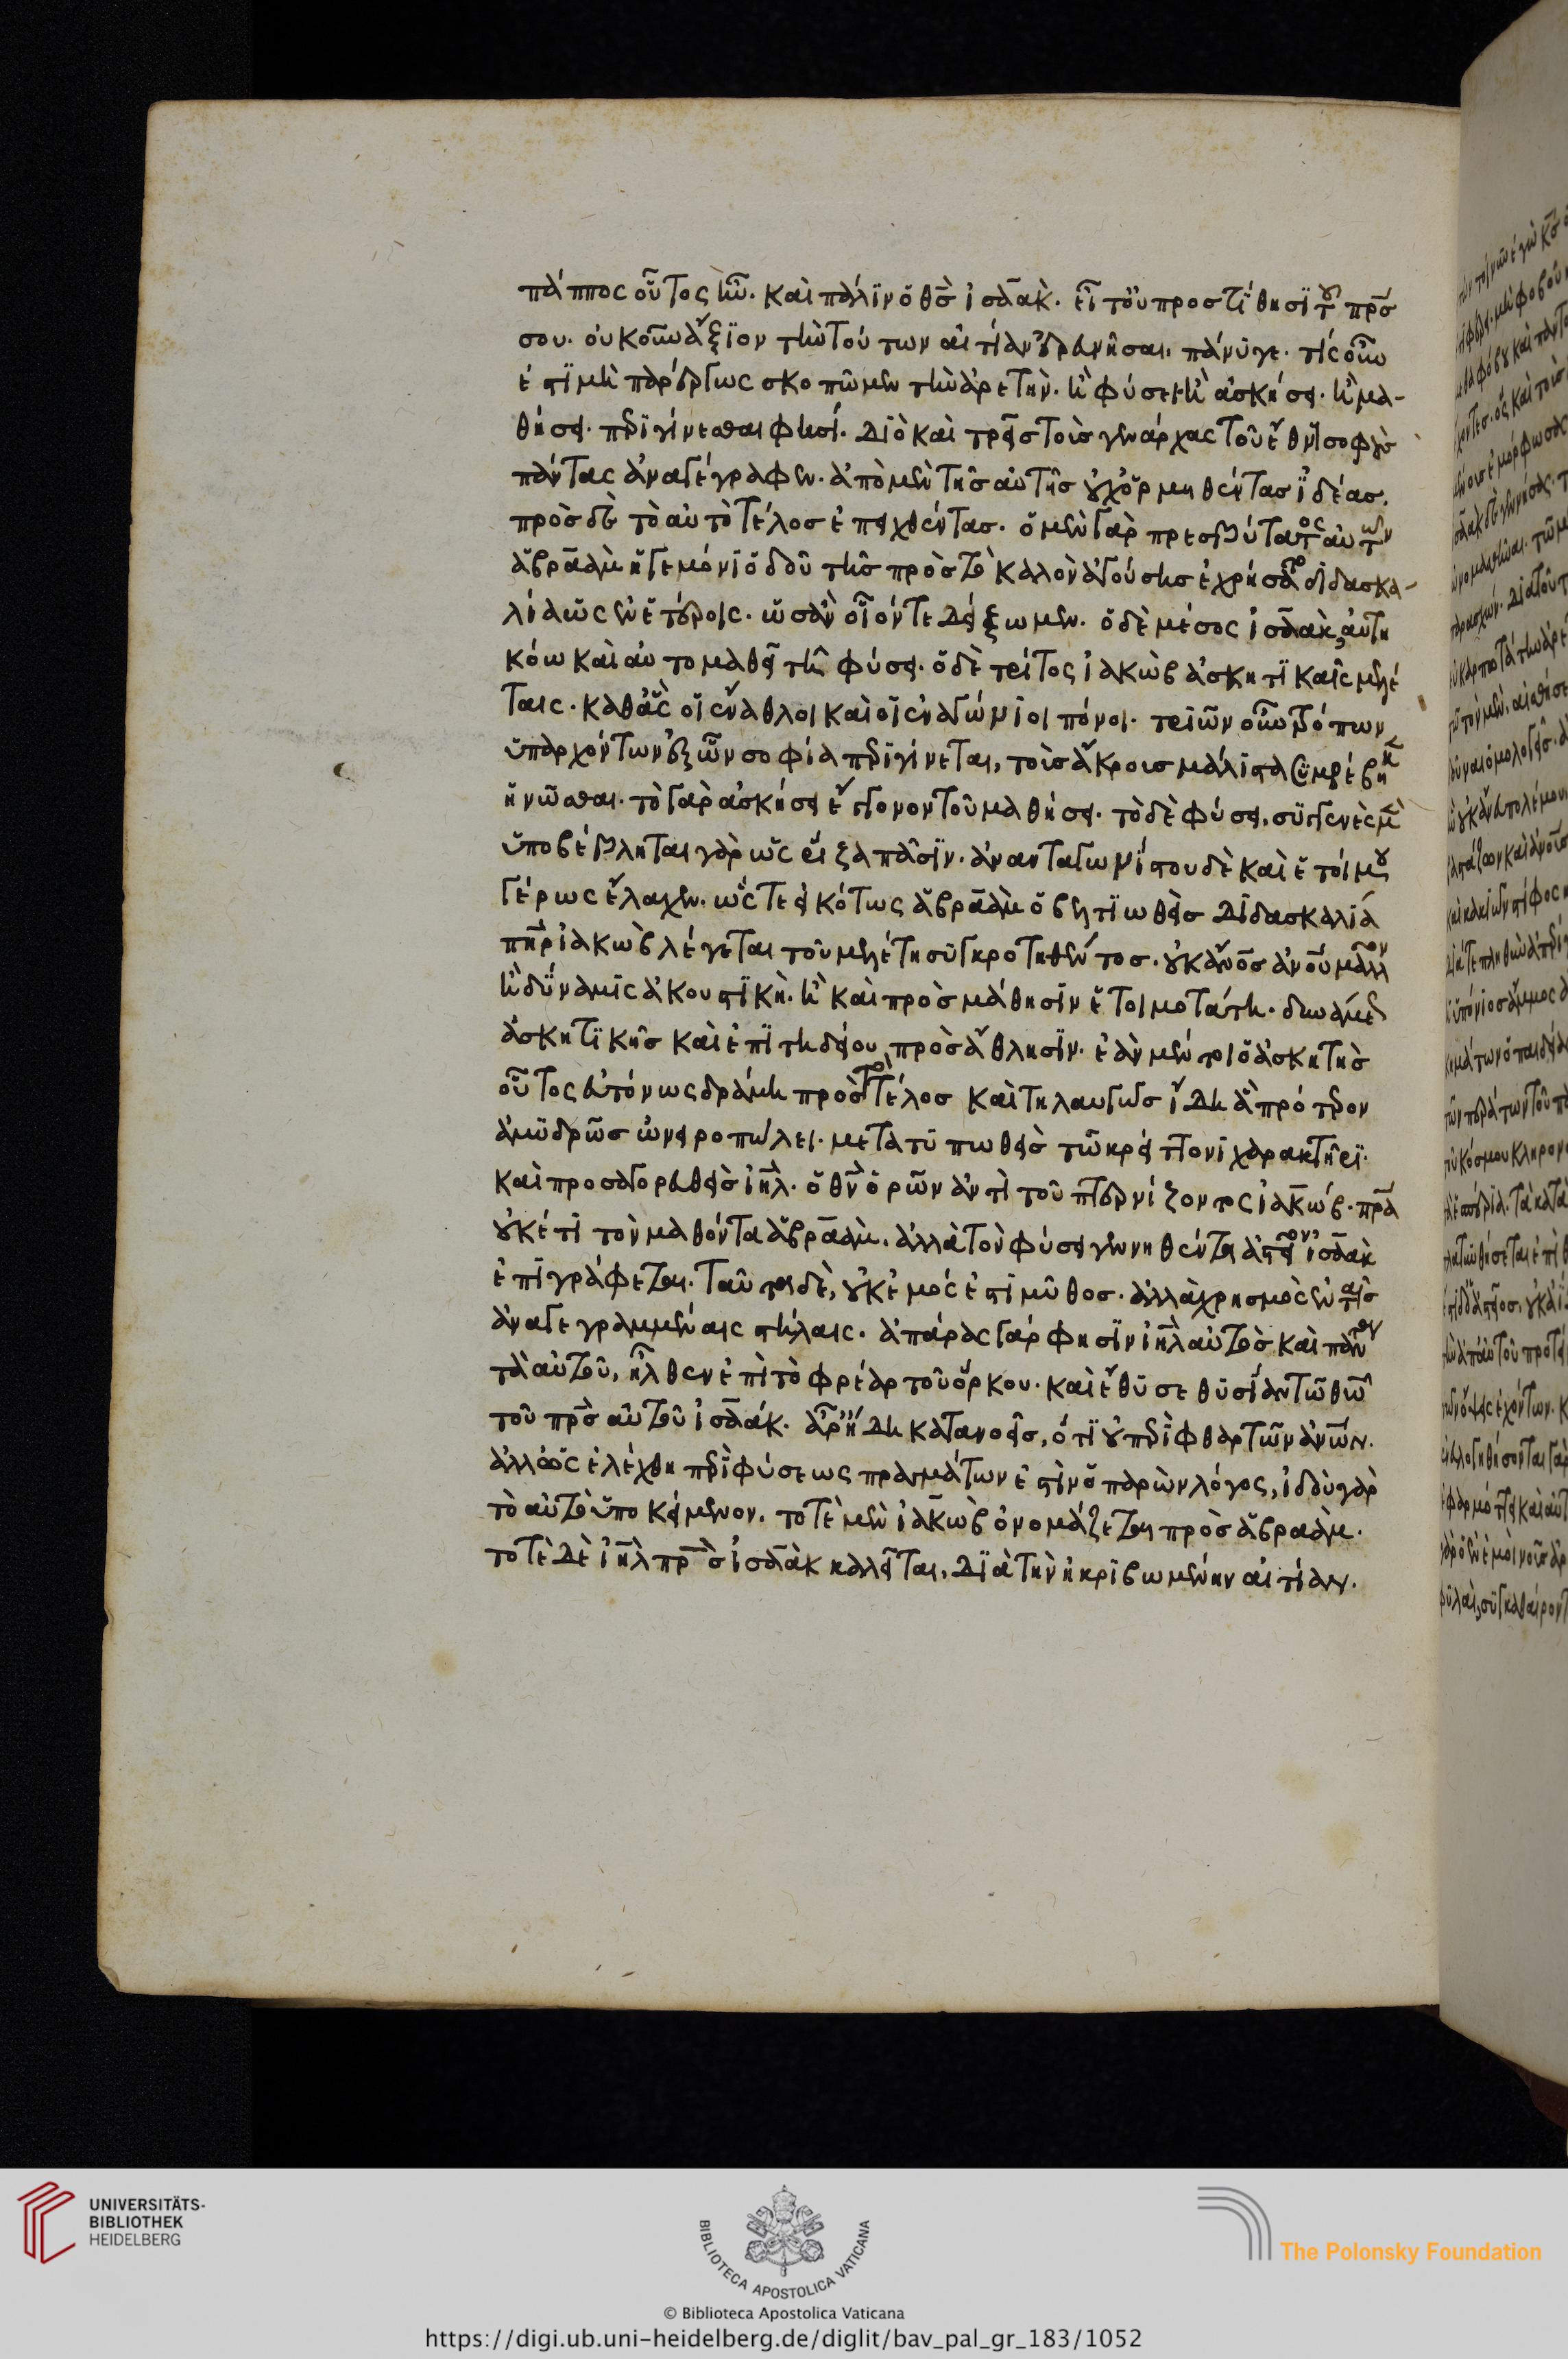 πάππος οὗτος ἦν. καὶ πάλιν ὁ θ̅ς̅ ἰσαάκ. εἶτ' οὐ προστίθησι τοῦ πρ̅ς̅
σου. οὐκοῦν ἄξιον τὴν τούτων αἰτίαν διερευνῆσαι. πάνυ γε. τίς οὖν
ἐστι μὴ παρέργως σκοπῶμεν τὴν ἀρετὴν. ἢ φύσει ἢ ἀσκήσει. ἢ μα-
θήσει. περιγίνεσθαι φησί. διὸ καὶ τρεῖς τοὺς γενάρχας τοῦ ἔθνους σοφοὺς
πάντας ἀναγέγραφεν. ἀπὸ μὲν τῆς αὐτῆς οὐχ ὁρμηθέντας ἰδέας.
πρὸς δὲ τὸ αὐτὸ τέλος ἐπειχθέντας. ὁ μὲν γὰρ πρεσβύτατος αὐτῶν
ἀβραὰμ ἡγεμόνι ὁδοῦ τῆς πρὸς τὸ καλὸν ἀγούσης ἐχρήσατο διδασκα-
λία ὡς ἐν ἑτέροις. ὡς ἂν οἷόν τε δείξωμεν. ὁ δὲ μέσος ἰσαὰκ, αὐτη
κόω καὶ αὐτομαθεῖ τῆ φύσει. ὁ δὲ τρίτος ἰακὼβ ἀσκητικαῖς μελέ
ταις. καθ' ἃς οἱ ἔναθλοι καὶ οἱ ἐναγώνιοι πόνοι. τριῶν οὖν τρόπων
ὑπαρχόντων ἐξ ὧν σοφία περιγίνεται, τοὺς ἄκρους μάλιστα συμβέβηκεν
ἡνῶσθαι. τὸ γὰρ ἀσκήσει ἔγγονον τοῦ μαθήσει. τὸ δὲ φύσει, συγγενὲς μὲν
ὑποβέβληται γὰρ ὡς ῥίζα πᾶσιν. ἀνανταγώνιστου δὲ καὶ ἑτοίμου
γέρως ἔλαχεν. ὥστε εἰκότως ἀβραὰμ ὁ βελτιωθεὶς διδασκαλία
π̅η̅ρ̅ ἰακὼβ λέγεται τοῦ μελέτη συγκροτηθέντος. οὐκ ἄνος ἀνου μᾶλλον
ἡ δύναμις ἀκουστικὴ. ἡ καὶ πρὸς μάθησιν ἑτοιμοτάτη. δυνάμεως
ἀσκητικῆς καὶ ἐπιτηδείου πρὸς ἄθλησιν. ἐὰν μέντοι ὁ ἀσκητὴς
οὗτος εὐτόνως δράμη πρὸς τὸ τέλος καὶ τηλαυγῶς ἴδη ἃ πρότερον
ἀμυδρῶς ὠνειροπόλει. μετατυπωθεὶς τῶ κρείττονι χαρακτῆρι.
καὶ προσαγορευθεὶς ἰ̅η̅λ̅. ὁ θ̅ν̅ ὁρῶν ἀντὶ τοῦ πτερνίζοντος ἰακώβ. πρ̅α̅
οὐκέτι τὸν μαθόντα ἀβραάμ. ἀλλὰ τὸν φύσει γεννηθέντα ἀστεῖον ἰσαὰκ
ἐπιγράφεται. ταῦτα δὲ, οὐκ ἐμός ἐστι μῦθος. ἀλλὰ χρησμὸς ἐν ταῖς
ἀναγεγραμμέναις στήλαις. ἀπάρας γάρ φησιν ἰ̅η̅λ̅ αὐτὸς καὶ πάντα
τὰ αὐτοῦ, ἦλθεν ἐπὶ τὸ φρέαρ τοῦ ὅρκου. καὶ ἔθυσε θυσίαν τῶ θ̅ω̅
τοῦ πρ̅ς̅ αὐτοῦ ἰσαάκ. ἆρ' ἤδη κατανοεῖς, ὅτι οὐ περὶ φθαρτῶν ἀνῶν.
ἀλλ' ὡς ἐλέχθη περὶ φύσεως πραγμάτων ἐστὶν ὁ παρὼν λόγος, ἰδοὺ γὰρ
τὸ αὐτὸ ὑποκείμενον. τοτὲ μὲν ἰακὼβ ὀνομάζεται πρὸς ἀβραάμ.
τοτὲ δὲ ἰ̅η̅λ̅ πρ̅ς̅ ἰσαὰκ καλεῖται, διὰ τὴν ἠκριβωμένην αἰτίαν.
UNIVERSITÄTS-
BIBLIOTHEK
HEIDELBERG
BIBLIOTECA APOSTOLICA VATICANA
The Polonsky Foundation
© Biblioteca Apostolica Vaticana
https://digi.ub.uni-heidelberg.de/diglit/bav_pal_gr_183/1052